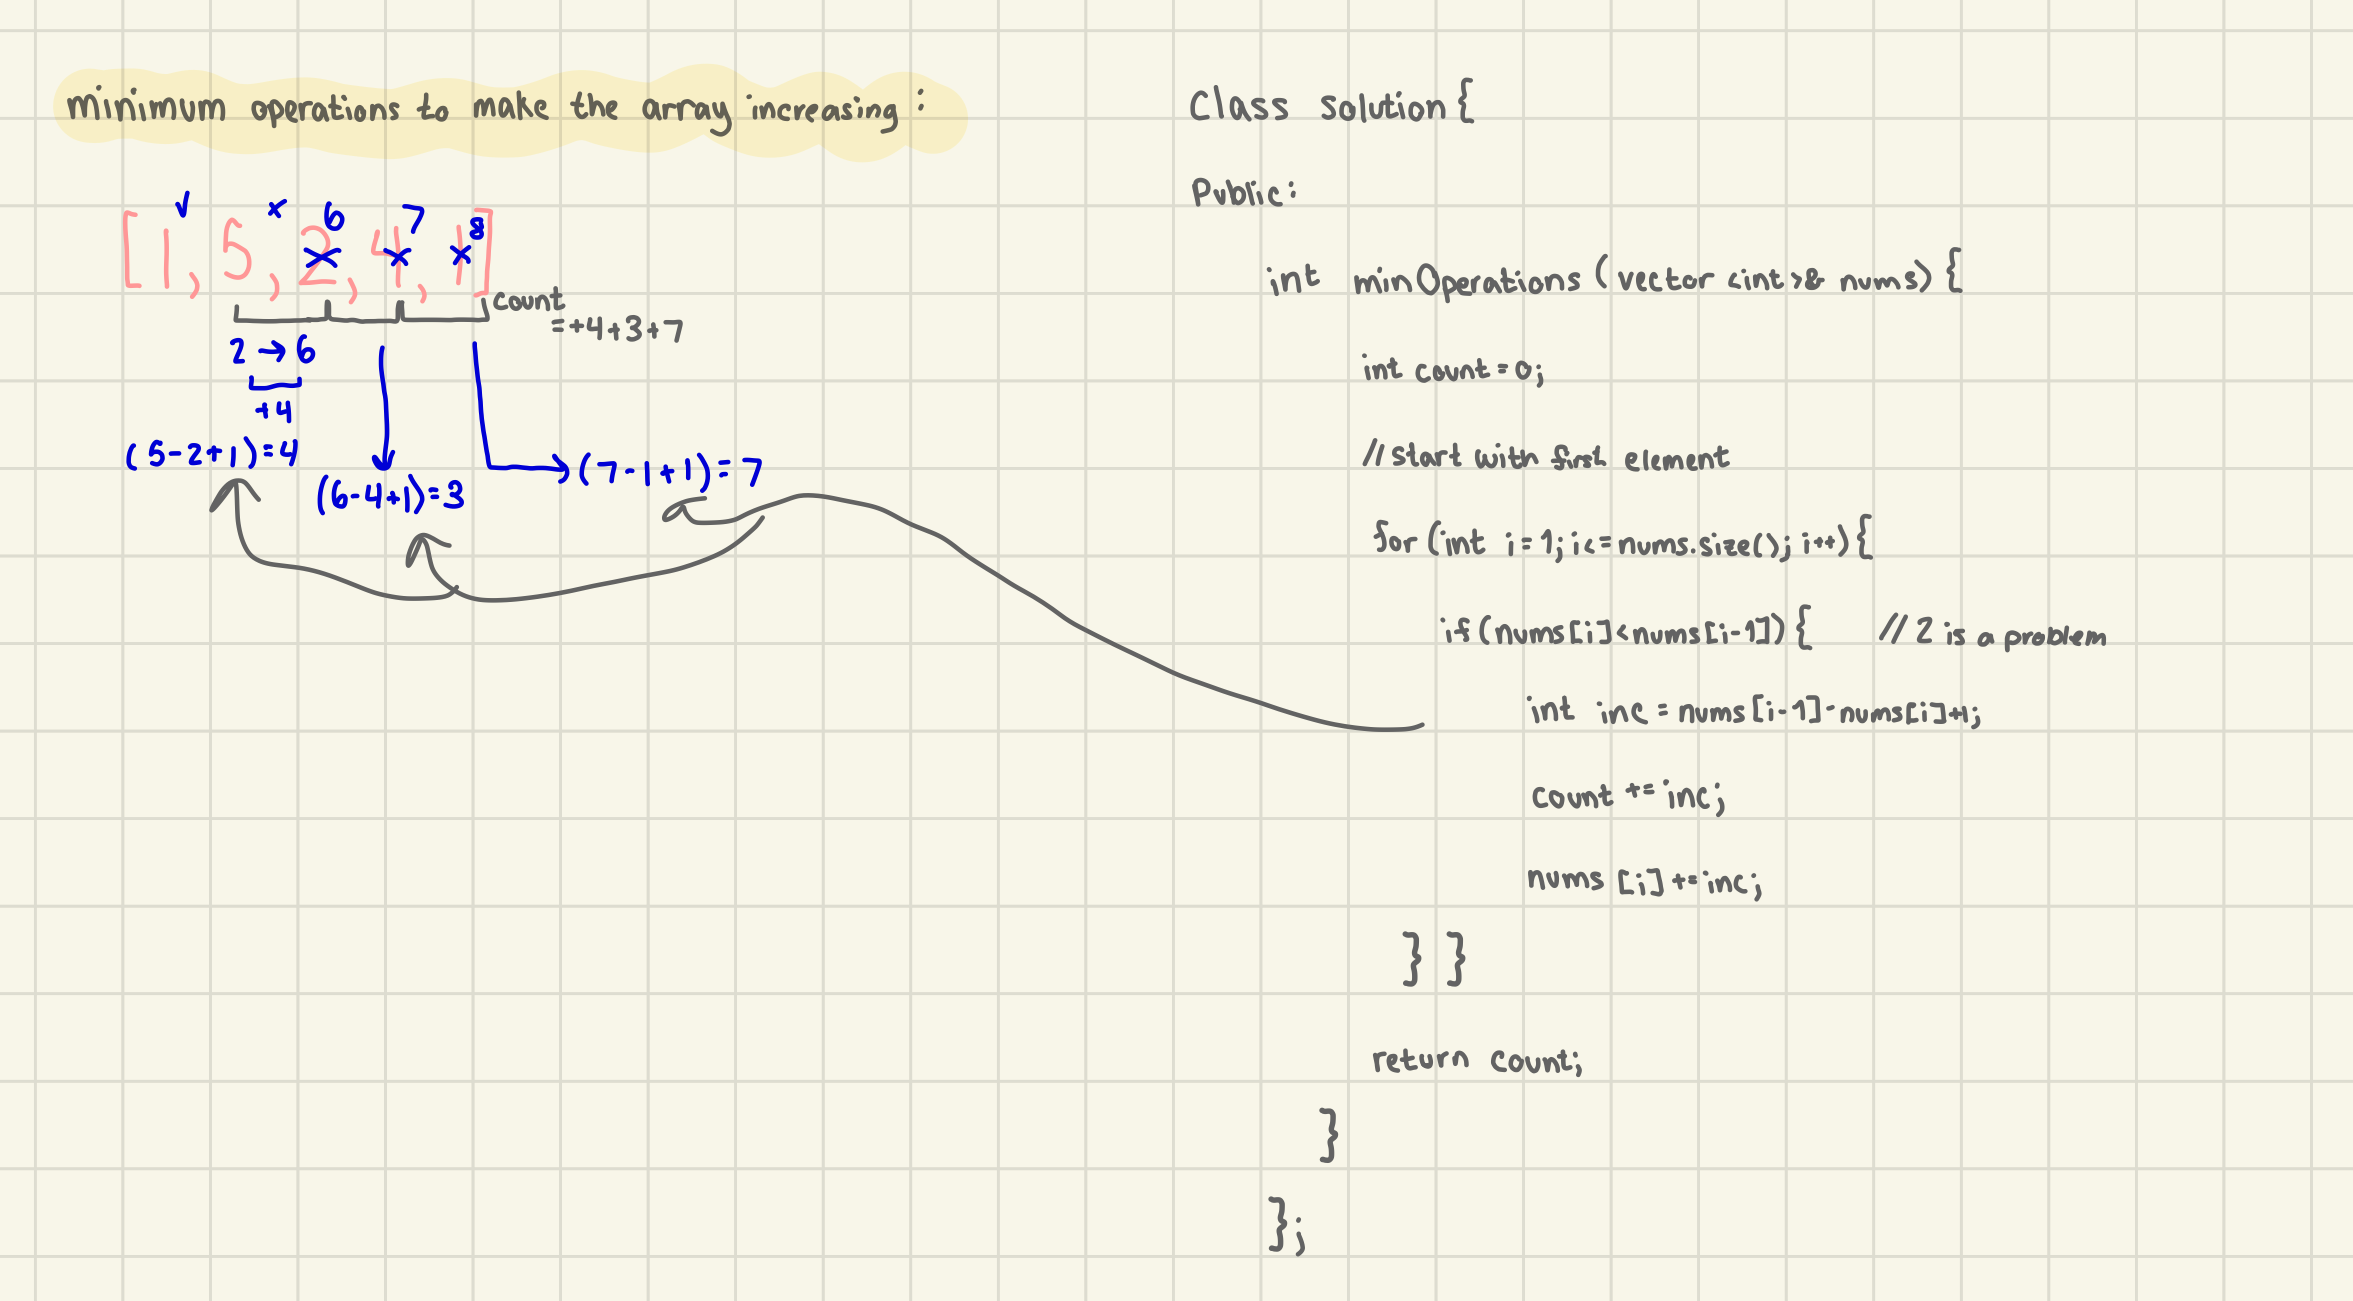 minimum operations to make the array increasing :
✓ × 6 7 8
[1, 5, 2, 4, 1]
count
=+4+3+7
2 → 6
+4
(5-2+1)=4
(6-4+1)=3
(7-1+1)=7
Class solution {
Public:
int minOperations (vector <int>& nums) {
int count = 0;
// start with first element
for (int i = 1; i <= nums.size(); i++) {
if (nums[i] < nums[i-1]) { // 2 is a problem
int inc = nums [i-1] - nums[i]+1;
count += inc;
nums [i] += inc;
} }
return count;
}
};